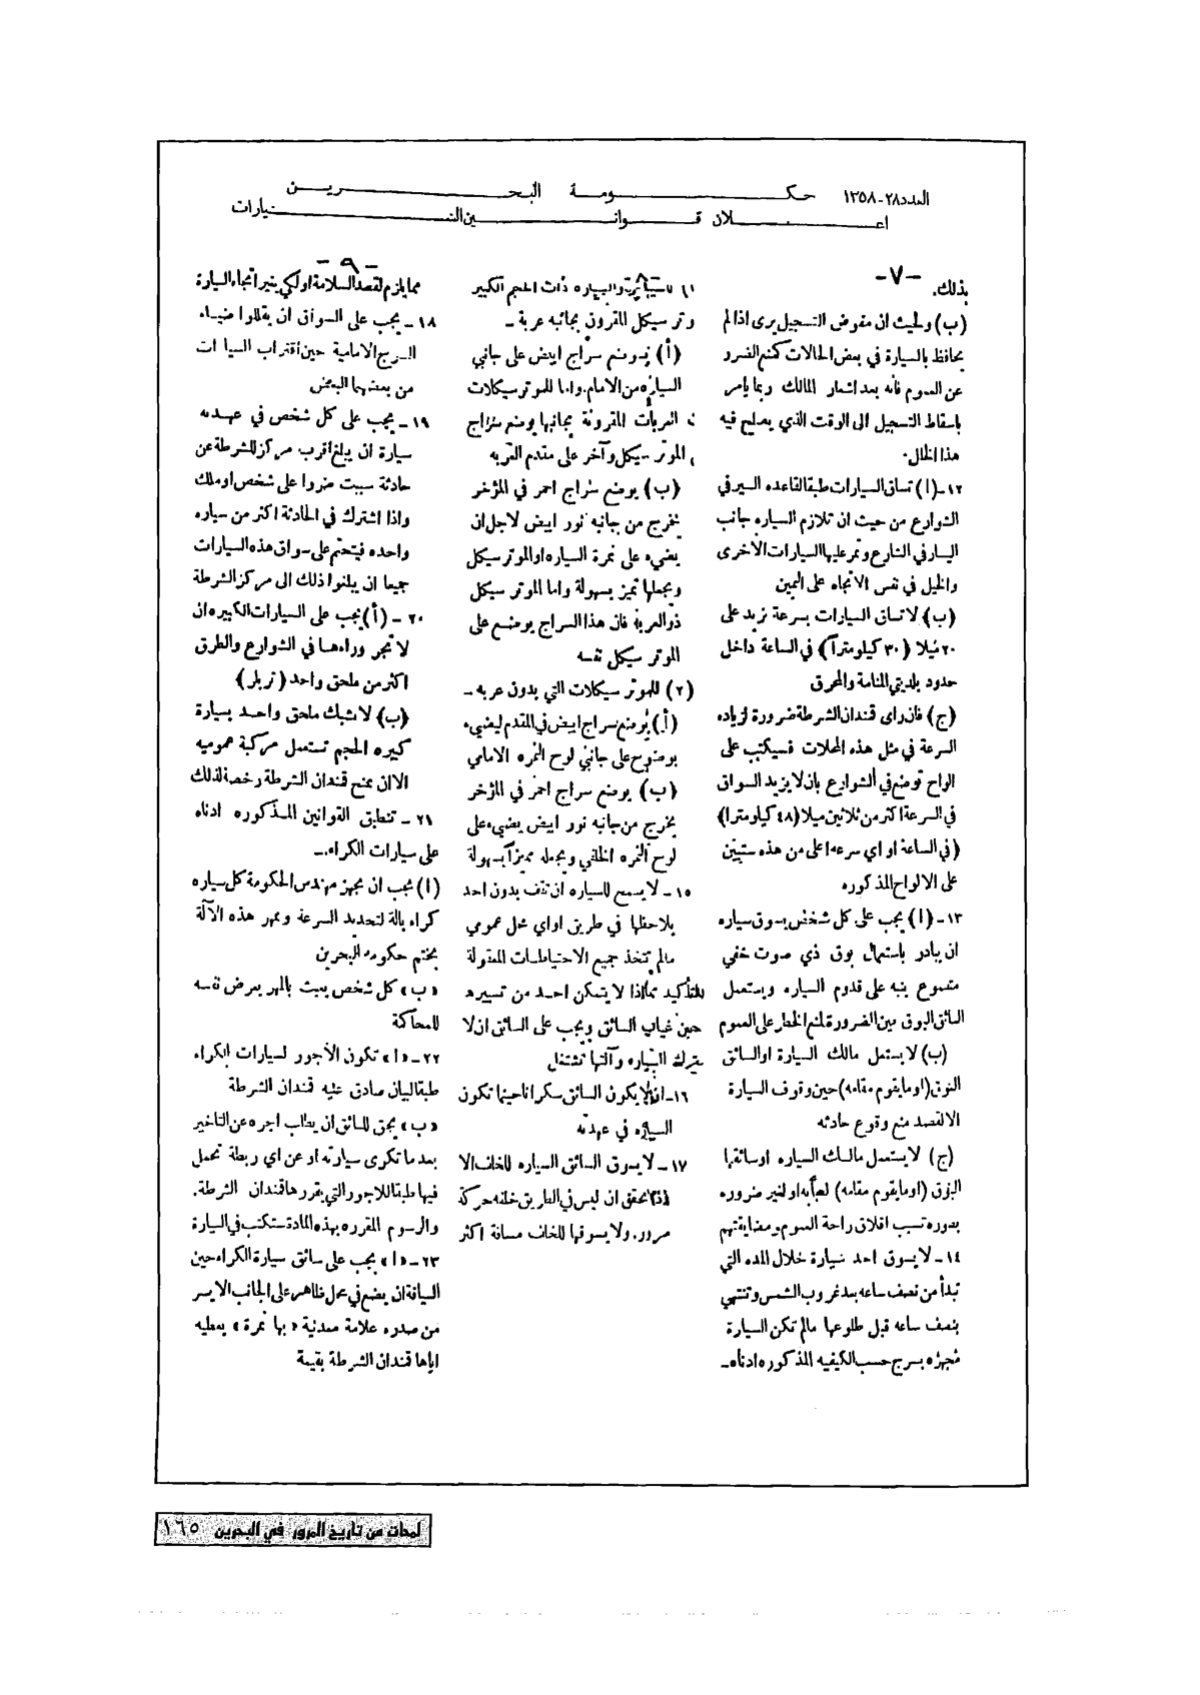 العدد ٢٨-١٣٥٨ حكـــومـــة البحـــريـــن
اعـــلان قـــوانـــين السيارات
-٧-
بذلك.
(ب) ولحيث ان مفوض التسجيل يرى اذا لم
يحافظ بالسيارة في بعض الحالات كمنع الضرر
عن العموم فأنه بعد اشعار المالك وربما يأمر
باسقاط التسجيل الى الوقت الذي يصلح فيه
هذا الخلل.
١٢-(ا) تساق السيارات طبقا لقاعده السير في
الشوارع من حيث ان تلازم السياره جانب
اليسار في الشارع وتمر عليها السيارات الاخرى
والخيل في نفس الاتجاه على اليمين
(ب) لا تساق السيارات بسرعة تزيد على
٢٠ ميلا (٣٠ كيلومتراً) في الساعة داخل
حدود بلديتي المنامة والمحرق
(ج) فان راى قندان الشرطة ضرورة لزياده
السرعة في مثل هذه المحلات فسيكتب على
الواح توضع في الشوارع بان لا يزيد السواق
في السرعة اكثر من ثلاثين ميلا (٤٨ كيلومترا)
(في الساعة او اي سرعه اعلى من هذه ستبين
على الالواح المذكوره
١٣-(ا) يجب على كل شخص يسوق سياره
ان يبادر باستعمال بوق ذي صوت خفي
مسموع ينبه على قدوم السياره ويستعمل
السائق البوق حين الضرورة لمنع الخطر على العموم
(ب) لا يستعمل مالك السيارة او السائق
البوق (او ما يقوم مقامه) حين وقوف السيارة
الا لقصد منع وقوع حادثه
(ج) لا يستعمل مالك السياره او سائقها
البوق (او ما يقوم مقامه) لعبا به او لغير ضروره
بدوره تسبب اقلاق راحة العموم ومضايقتهم
١٤- لا يسوق احد سيارة خلال المده التي
تبدأ من نصف ساعه بعد غروب الشمس وتنتهي
بنصف ساعه قبل طلوعها مالم تكن السيارة
مجهزه بسرج حسب الكيفيه المذكوره ادناه-
-٨-
١) للسيارة والسياره ذات الحجم الكبير
وتر سيكل المقرون بجانبه عربة -
(أ) يوضع سراج ابيض على جانبي
السياره من الامام. واما للموتر سيكلات
ت العربات المقرونة بجانبها يوضع سراج
الموتر سيكل وآخر على مقدم العربه
(ب) يوضع سراج احمر في المؤخر
يخرج من جانبه نور ابيض لاجل ان
يضيء على نمرة السياره او الموتر سيكل
ويجعلها تميز بسهولة واما الموتر سيكل
ذو العربة فان هذا السراج يوضع على
الموتر سيكل نفسه
(٢) للموتر سيكلات التي بدون عربه -
(أ) يوضع سراج ابيض في المقدم ليضيء
بوضوح على جانبي لوح النمره الامامي
(ب) يوضع سراج احمر في المؤخر
يخرج من جانبه نور ابيض يضيء على
لوح النمره الخلفي ويجعله مميزاً بسهولة
١٥- لا يسمح للسياره ان تقف بدون احد
يلاحظها في طريق او اي محل عمومي
مالم تتخذ جميع الاحتياطات المعقولة
للتأكيد مما اذا لا يتمكن احد من تسييره
حين غياب السائق ويجب على السائق ان لا
يترك السياره وآلتها تشتغل
١٦- لا يكون السائق سكرانا حينما تكون
السياره في عهدته
١٧- لا يسوق السائق السياره للخلف الا
اذا تحقق ان ليس في الطريق خلفه حركة
مرور. ولا يسوقها للخلف مسافة اكثر
-٩-
مما يلزم لقصد السلامة او لكي يغير اتجاه السيارة
١٨- يجب على السواق ان يقللوا ضياء
السرج الامامية حين اقتراب السيا ات
من بعضها البعض
١٩- يجب على كل شخص في عهدته
سيارة ان يبلغ اقرب مركز للشرطة عن
حادثة سببت ضررا على شخص او ملك
واذا اشترك في الحادثة اكثر من سياره
واحده فيتحتم على سواق هذه السيارات
جميعا ان يبلغوا ذلك الى مركز الشرطة
٢٠-(أ) يجب على السيارات الكبيره ان
لا تجر وراءها في الشوارع والطرق
اكثر من ملحق واحد (تريلر)
(ب) لا يشبك ملحق واحد بسيارة
كبيره الحجم تستعمل مركبة عموميه
الا ان يمنح قندان الشرطة رخصة لذلك
٢١- تنطبق القوانين المذكوره ادناه
على سيارات الكراء-
(ا) يجب ان يجهز مهندس الحكومة كل سياره
كراء بالة لتحديد السرعة ويمهر هذه الآلة
بختم حكومة البحرين
«ب» كل شخص يعبث بالمهر يعرض نفسه
للمحاكمة
٢٢-«ا» تكون الأجور لسيارات الكراء
طبقا لبيان صادق عليه قندان الشرطة
«ب» يحق للسائق ان يطلب اجره عن التاخير
بعد ما تكرى سيارته او عن اي ربطة تحمل
فيها طبقا للاجور التي يقررها قندان الشرطة.
والرسوم المقرره بهذه المادة ستكتب في السيارة
٢٣-«ا» يجب على سائق سيارة الكراء حين
السياقة ان يضع في محل ظاهر على الجانب الايسر
من صدره علامة معدنية «بها نمرة» يعطيه
اياها قندان الشرطة بقيمة
لمحات من تاريخ المرور في البحرين ١٦٥